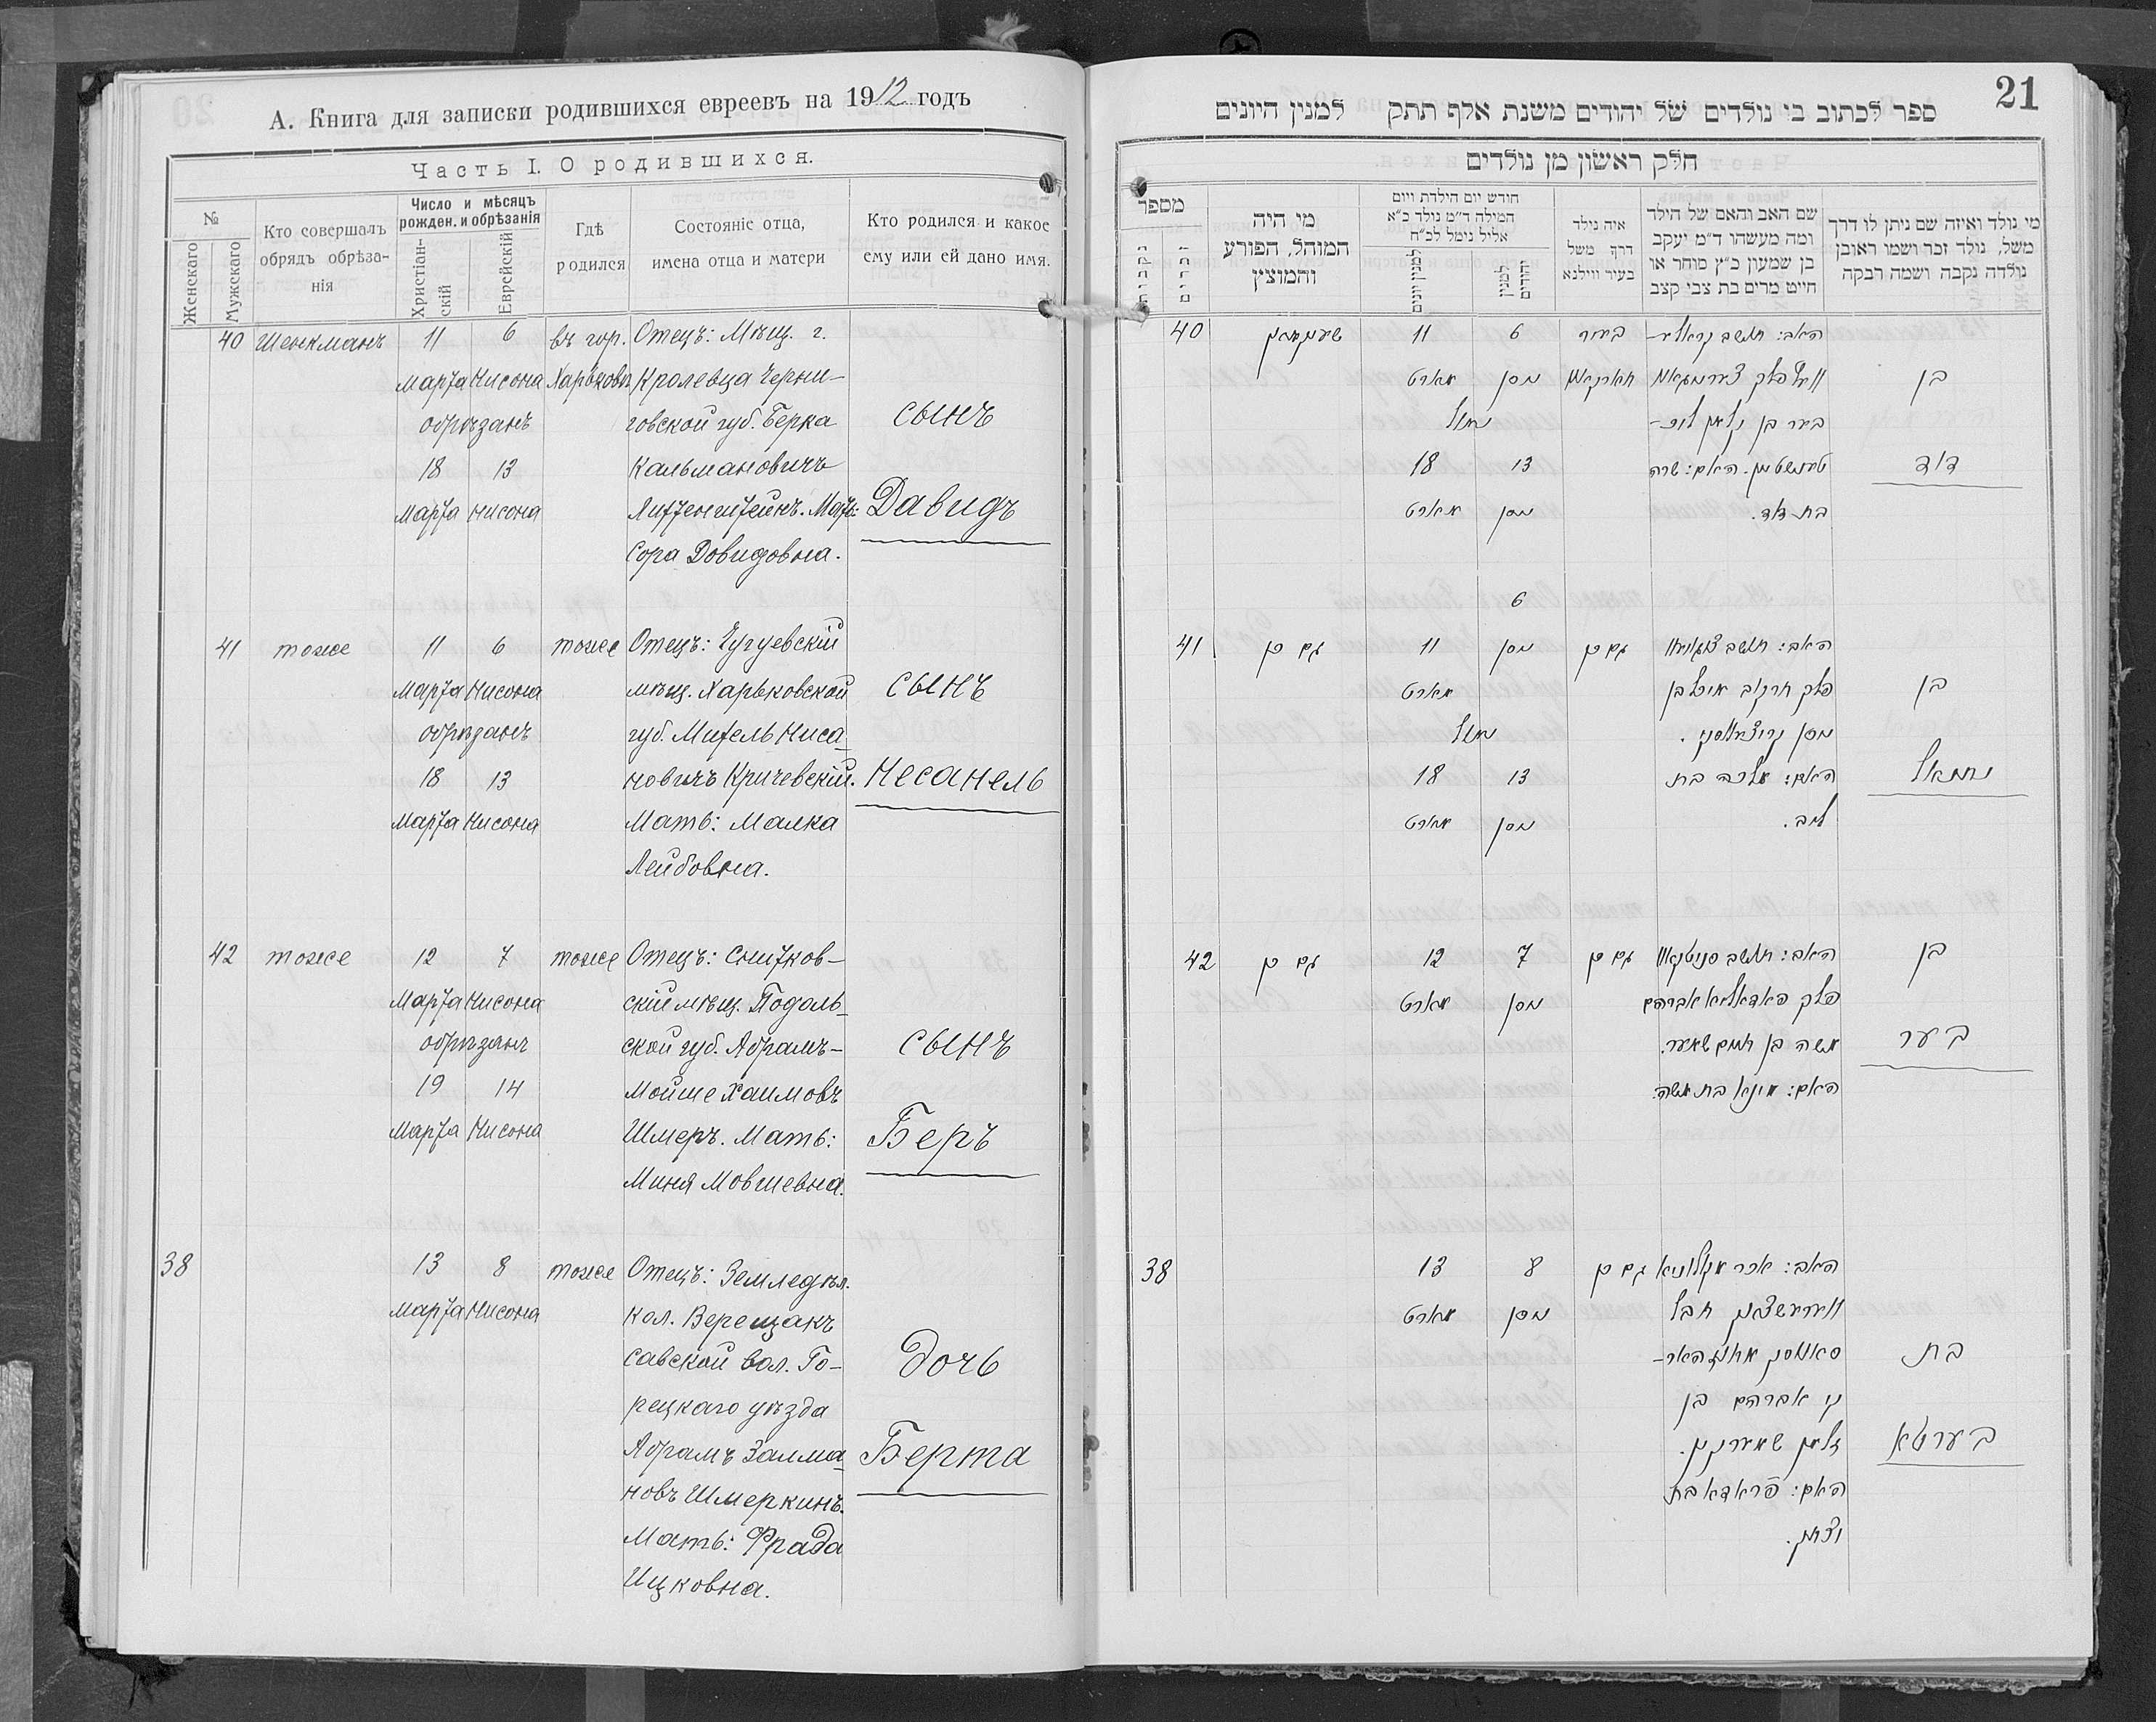 А. Книга для записки родившихся евреевъ на 1912 годъ
Часть I. О родившихся.
№
Женскаго
Мужскаго
Кто совершалъ
обрядъ обрѣза-
нія
Число и мѣсяцъ
рожден. и обрѣзанія
Христіан-
скій
Еврейскій
Гдѣ
родился
Состояніе отца,
имена отца и матери
Кто родился и какое
ему или ей дано имя.
40 Шенкманъ 11 6 въ гор. Отецъ: Мѣщ. г.
Марта Нисона Харьковѣ Кролевца Черни-
обрѣзанъ говской губ. Берка сынъ
18 13 Кальмановичъ
Марта Нисона Лихтенштейнъ. Мать: Давидъ
Сора Довидовна.
41 тоже 11 6 тоже Отецъ: Чугуевскій
Марта Нисона мѣщ. Харьковской сынъ
обрѣзанъ губ. Михель Ниса-
18 13 новичъ Кричевскій. Несанель
Марта Нисона Мать: Малка
Лейбовна.
42 тоже 12 7 тоже Отецъ: Снитков-
Марта Нисона скій мѣщ. Подоль-
обрѣзанъ ской губ. Абрамъ- сынъ
19 14 Мойше Хаимовъ
Марта Нисона Шмеръ. Мать: Беръ
Миня Мовшевна.
38 13 8 тоже Отецъ: Земледѣл.
Марта Нисона кол. Верещакъ
савской вол. Го- дочь
рецкаго уѣзда
Абрамъ Залма- Берта
новъ Шмеркинъ.
Мать: Фрада
Ицковна.
21
ספר לכתוב בי נולדים של יהודים משנת אלף תתק למנין היונים
חלק ראשון מן נולדים
מספר
נקבות
זכרים
מי היה
המוהל, הפורע
והמוצץ
חודש יום הילדת ויום
המילה ד״מ נולד כ״א
אליל נימל לכ״ח
למנין יונים
למנין
יהודים
איה נילד
דרך משל
בעיר ווילנא
שם האב והאם של הילד
ומה מעשהו ד״מ יעקב
בן שמעון כ״ץ סוחר או
חייט מרים בת צבי קצב
מי נולד ואיזה שם ניתן לו דרך
משל, נולד זכר ושמו ראובן
נולדה נקבה ושמה רבקה
40 שענקמאן 11 6 בעיר האב: תושב
מארט ניסן חארקאוו בן
נימול בער בן קלמן ליכ-
18 13 טענשטיין. האם: שרה דוד
מארט ניסן בת דוד.
6
41 גם כן 11 ניסן גם כן האב: תושב
מארט פלך חרקוב מיכל בן בן
נימול ניסן קריצעווסקי.
18 13 האם: מלכה בת נתנאל
מארט ניסן ליב.
42 גם כן 12 7 גם כן האב: תושב בן
מארט ניסן פלך פאדאליא אברהם
משה בן חיים שמער. בער
האם: מיניא בת משה.
38 13 8 גם כן האב: אכר
מארט ניסן
בת
אברהם בן
זלמן שמערקין. בערטא
האם: פראדא בת
יצחק.